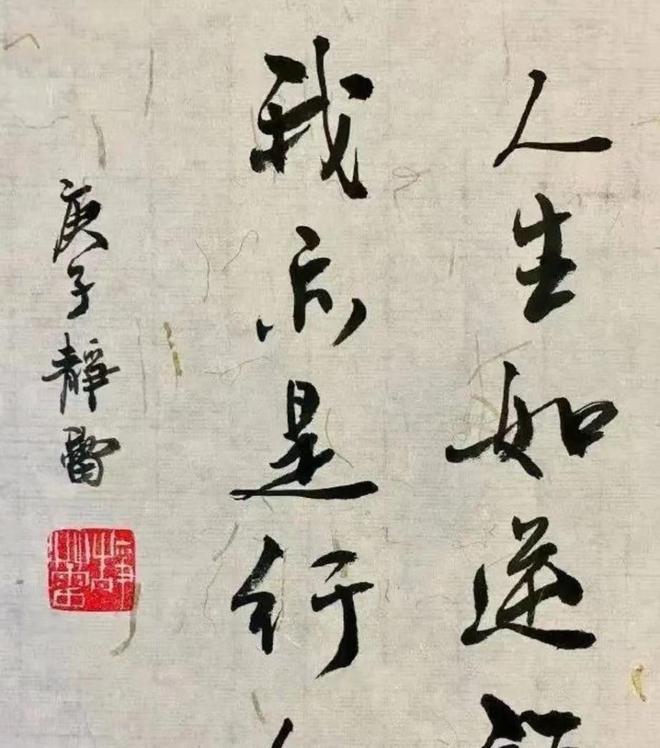 人生如逆
我亦是行
庚子靜雷